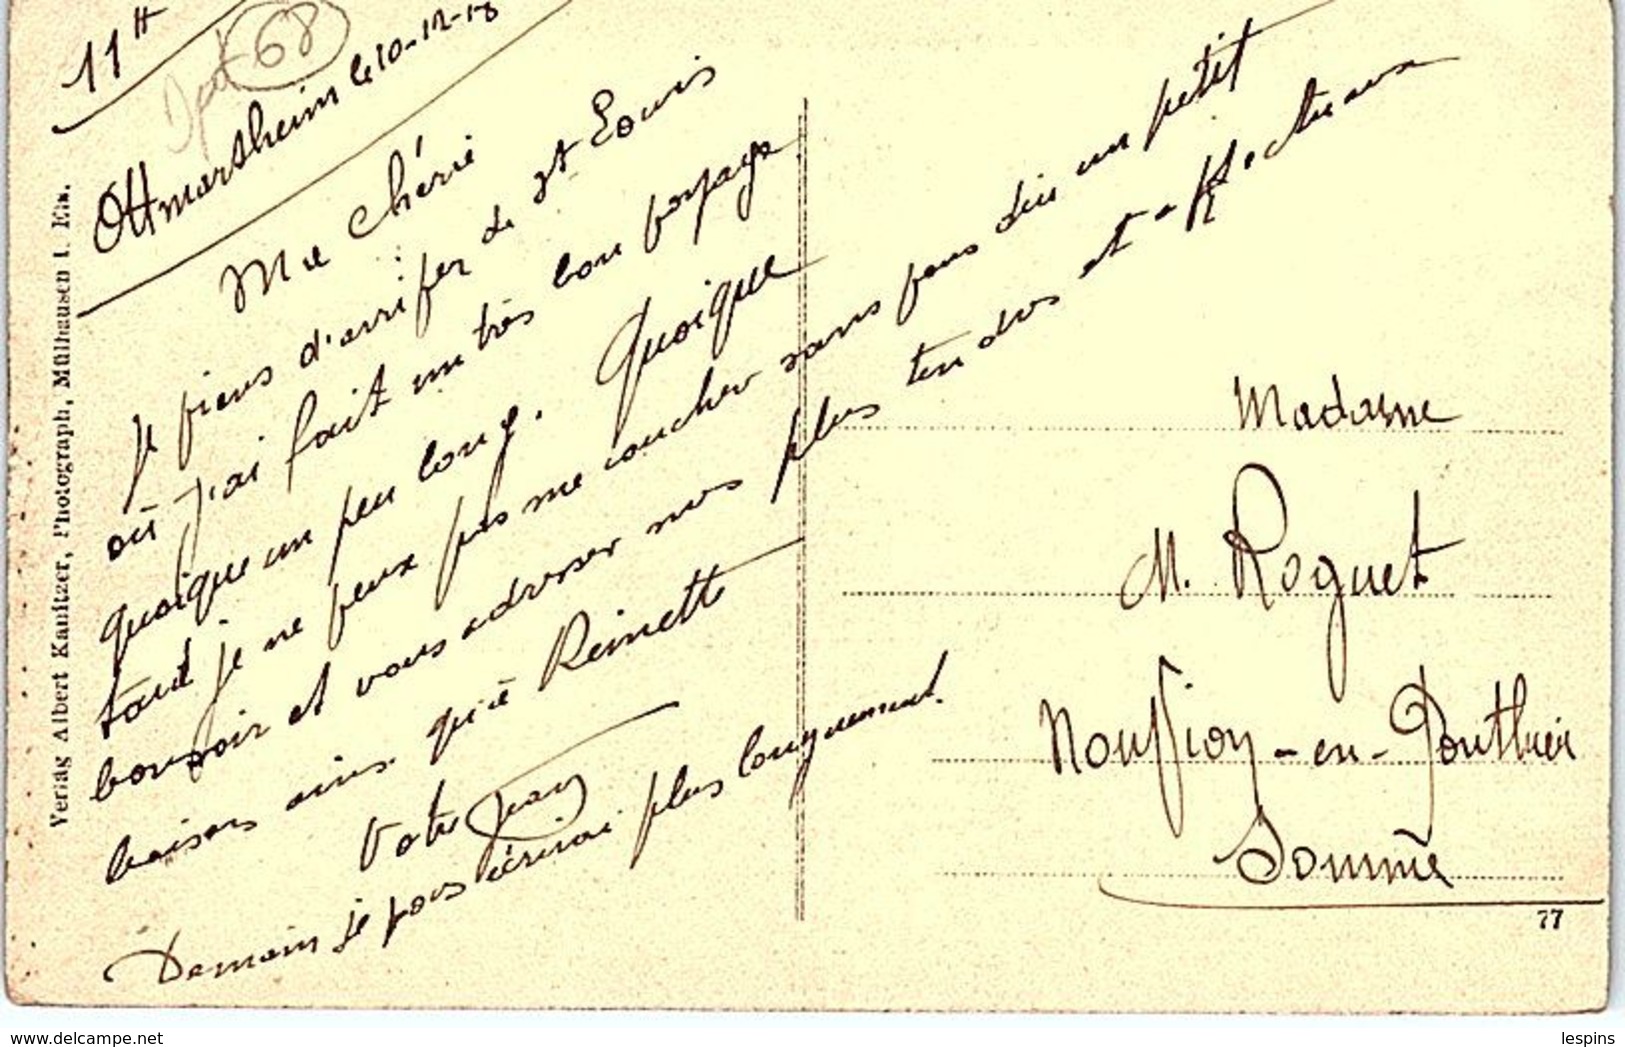 11 H
Dpt 68
Ottmarsheim le 10-12-18
Ma Chérie
Je viens d'arriver de St Louis
où j'ai fait un très bon voyage
quoique un peu long. Quoique
tard je ne veux pas me coucher sans vous dire un petit
bonsoir et vous adresser mes plus tendres et affectueux
baisers ainsi qu'à Reinette
Votre Jean
Demain je vous écrirai plus longuement.
Madame
M. Roguet
Nouvion-en-Ponthieu
Somme
77
Verlag Albert Kanitzer, Photograph, Mülhausen i. Els.
https://www.delcampe.net
lespins